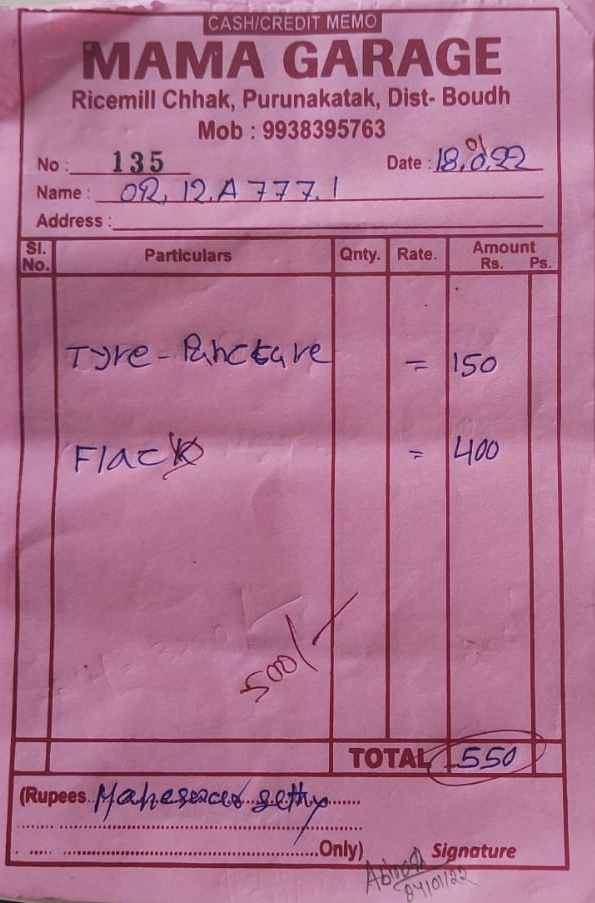 CASH/CREDIT MEMO
MAMA GARAGE
Ricemill Chhak, Purunakatak, Dist- Boudh
Mob : 9938395763
No : 135 Date : 18.01.22
Name : OR, 12.A 777.1
Address :
Sl. No. Particulars Qnty. Rate. Amount Rs. Ps.
Tyre - Puncture = 150
Flack = 400
500/-
TOTAL 550
(Rupees Maheswar Sethy
Only) Signature
24/01/22